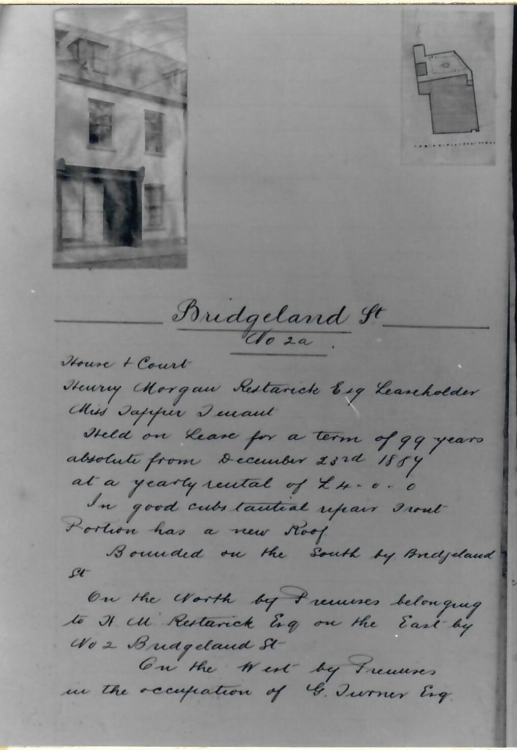 Bridgeland St
No 2a.
House + Court
Henry Morgan Restarick Esq Leaseholder
Miss Tapper Tenant
Held on Lease for a term of 99 years
absolute from December 23rd 1887
at a yearly rental of £4-0-0
In good cubstantial repair Front
Portion has a new Roof
Bounded on the South by Bridgeland
St
On the North by Premises belonging
to H. M. Restarick Esq on the East by
No 2 Bridgeland St
On the West by Premises
in the occupation of G. Turner Esq.